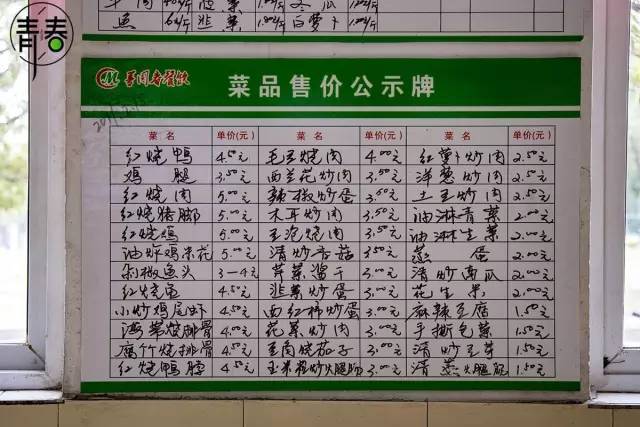 青春
菜品售价公示牌
2017.2.15
菜 名 单价(元) 菜 名 单价(元) 菜 名 单价(元)
红烧鸭 4.50元 毛豆烧肉 4.00元 红萝卜炒肉 2.50元
鸡腿 3.50元 西兰花炒肉 3.50元 洋葱炒肉 2.50元
红烧肉 5.00元 辣椒炒蛋 3.50元 土豆炒肉 2.50元
红烧猪脚 5.00元 木耳炒肉 3.50元 油淋青菜 2.00元
红烧鸡 5.00元 豆泡烧肉 3.50元 油淋生菜 2.00元
油炸鸡米花 5.00元 清炒香菇 3.50元 蒸蛋 2.00元
剁椒鱼头 3-4元 芹菜酱干 3.00元 清炒南瓜 2.00元
红烧鱼 4.50元 韭菜炒蛋 3.00元 花生米 2.00元
小炒鸡尾虾 4.50元 西红柿炒蛋 3.00元 麻辣豆腐 1.50元
海带烧排骨 4.00元 花菜炒肉 3.00元 手撕包菜 1.50元
腐竹烧排骨 4.50元 豆角烧茄子 3.00元 清炒豆芽 1.50元
红烧鸭脖 4.50元 玉米粒炒火腿肠 3.00元 清蒸火腿肠 1.50元